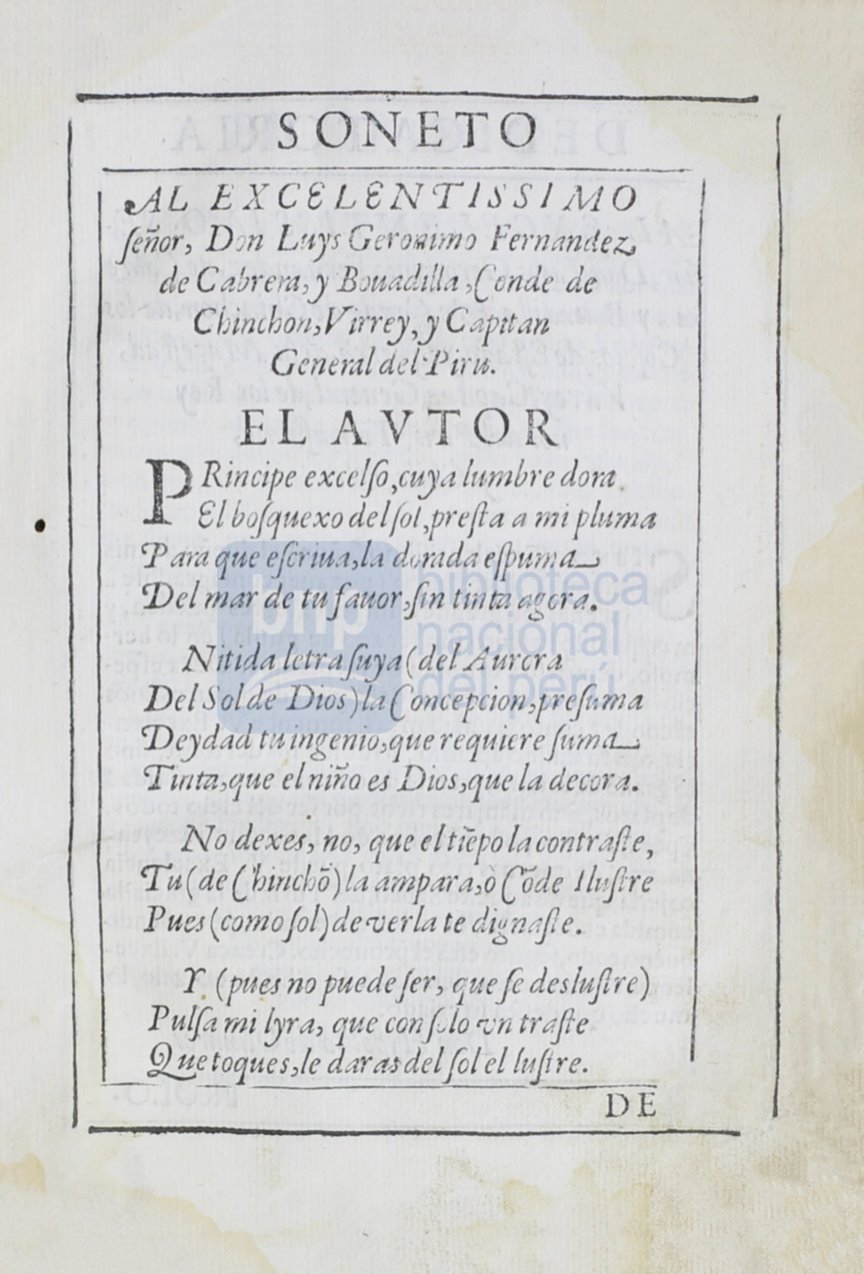 SONETO
AL EXCELENTISSIMO
ſeñor, Don Luys Geronimo Fernandez
de Cabrera, y Bouadilla, Conde de
Chinchon, Virrey, y Capitan
General del Piru.
EL AVTOR
PRincipe excelſo, cuya lumbre dora
El boſquexo del ſol, preſta a mi pluma
Para que eſcriua, la dorada eſpuma
Del mar de tu fauor, ſin tinta agora.
Nitida letra ſuya (del Aurora
Del Sol de Dios) la Concepcion, preſuma
Deydad tu ingenio, que requiere ſuma
Tinta, que el niño es Dios, que la decora.
No dexes, no, que el tiẽpo la contraſte,
Tu (de Chinchõ) la ampara, ò Cõde Iluſtre
Pues (como ſol) de verla te dignaſte.
Y (pues no puede ſer, que ſe desluſtre)
Pulſa mi lyra, que con ſolo vn traſte
Que toques, le daras del ſol el luſtre.
DE
bnp biblioteca
nacional
del perú